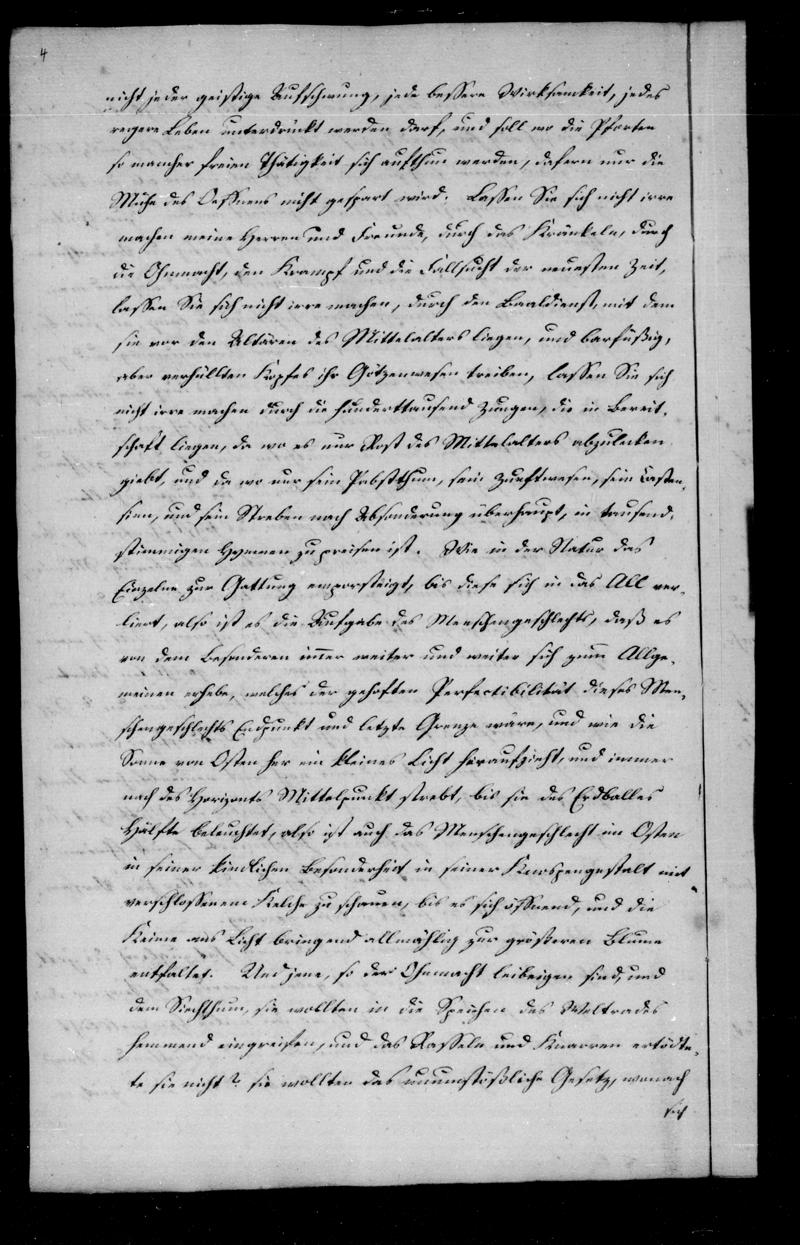 4
nicht jeder geistige Aufschwung, jede bessere Wirksamkeit, jedes
regere Leben unterdrückt werden darf, und soll wo die Pforten
so mancher freien Thätigkeit sich aufthun werden, dafern nur die
Mühe des Oeffnens nicht gespart wird. Lassen Sie sich nicht irre
machen meine Herren und Freunde, durch das Kränkeln, durch
die Ohnmacht, den Krampf und die Fallsucht der neuesten Zeit,
lassen Sie sich nicht irre machen, durch den Baaldienst, mit dem
sie vor den Altären des Mittelalters liegen, und barfüßig,
aber verhüllten Kopfes ihr Götzenwesen treiben, lassen Sie sich
nicht irre machen durch die hunderttausend Zungen, die in Bereit-
schaft liegen, da wo es nur Rost des Mittelalters abzulecken
giebt, und da wo nur sein Pabstthum, sein Zunftwesen, sein Casten-
sinn, und sein Streben nach Absonderung überhaupt, in tausend-
stimmigen Hymnen zu preisen ist. Wie in der Natur das
Einzelne zur Gattung emporsteigt, bis diese sich in das All ver-
liert, also ist es die Aufgabe des Menschengeschlechts, daß es
von dem Besonderen immer weiter und weiter sich zum Allge-
meinen erhebe, welches der gehofften Perfectibilität dieses Men-
schengeschlechts Endpunkt und letzte Grenze wäre, und wie die
Sonne von Osten her ein kleines Licht heraufzieht, und immer
nach des Horizonts Mittelpunkt strebt, bis sie des Erdballes
Hälfte beleuchtet, also ist auch das Menschengeschlecht im Osten
in seiner kindlichen Besonderheit in seiner Knospengestalt mit
verschlossenem Kelche zu schauen, bis es sich öffnend, und die
Keime ans Licht bringend allmählig zur größeren Blume
entfaltet. Und jene, so der Ohnmacht leibeigen sind, und
dem Siechthum, sie wollten in die Speichen des Weltrades
hemmend eingreifen, und das Rasseln und Knarren ertödte-
te sie nicht? sie wollten das unumstößliche Gesetz, wonach
sich